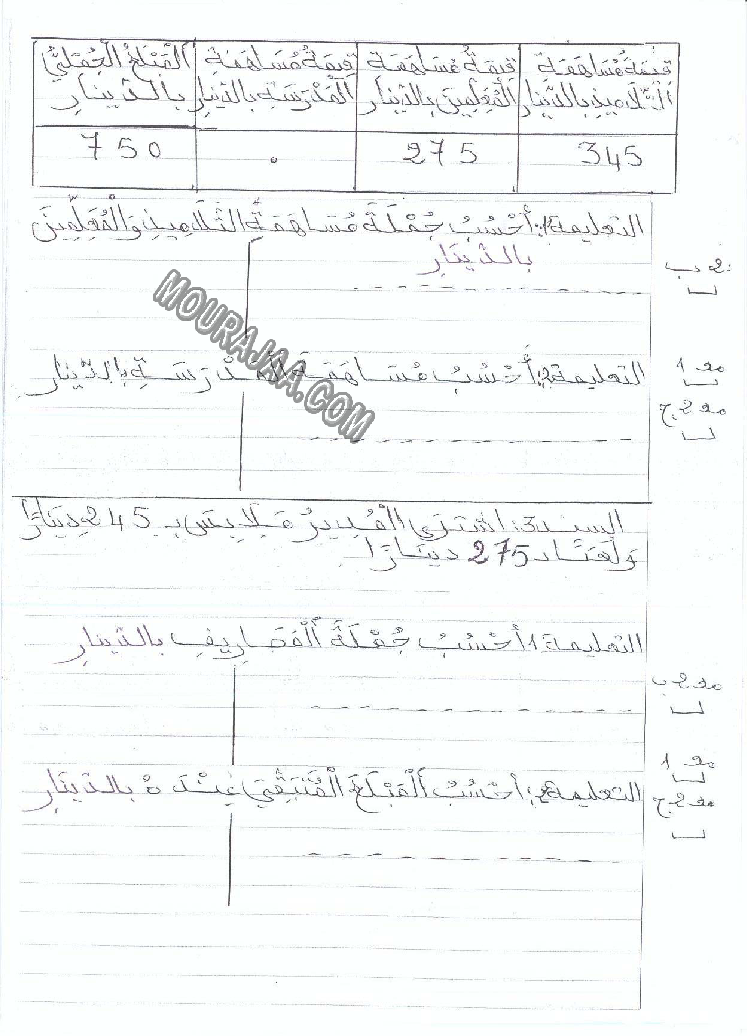 قِيمَةُ مُسَاهَمَةِ التَّلَامِيذِ بِالدِّينَارِ
قِيمَةُ مُسَاهَمَةِ الْمُعَلِّمِينَ بِالدِّينَارِ
قِيمَةُ مُسَاهَمَةِ الْمَدْرَسَةِ بِالدِّينَارِ
الْمَبْلَغُ الْجُمْلِيُّ بِالدِّينَارِ
345
275
.
750
التعليمة1: أَحْسُبُ جُمْلَةَ مُسَاهَمَةِ التَّلَامِيذِ وَالْمُعَلِّمِينَ
بِالدِّينَارِ
مع2 ب
MOURAJAA.COM
التعليمة2: أَحْسُبُ مُسَاهَمَةَ الْمَدْرَسَةِ بِالدِّينَارِ
مع 1
مع2 ج
السند3: اشْتَرَى الْمُدِيرُ مَلَابِسَ بِـ 245 دِينَارًا
وَلَعِبًا بـ 275 دِينَارًا
التعليمة1: أَحْسُبُ جُمْلَةَ الْمَصَارِيفِ بِالدِّينَارِ
مع2 ب
التعليمة2: أَحْسُبُ الْمَبْلَغَ الْمُتَبَقِّيَ عِنْدَهُ بِالدِّينَارِ
مع 1
مع2 ج